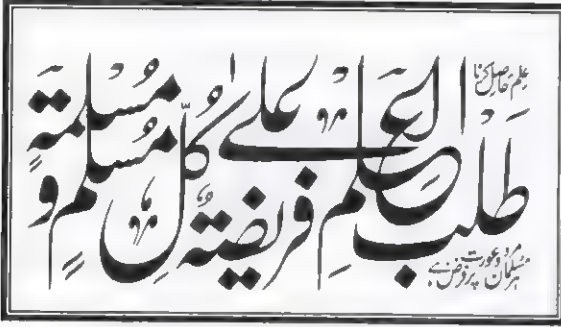 علم حاصل کرنا
طَلَبُ الْعِلْمِ فَرِيضَةٌ عَلٰى كُلِّ مُسْلِمٍ وَّ مُسْلِمَةٍ
ہر مسلمان مرد و عورت پر فرض ہے